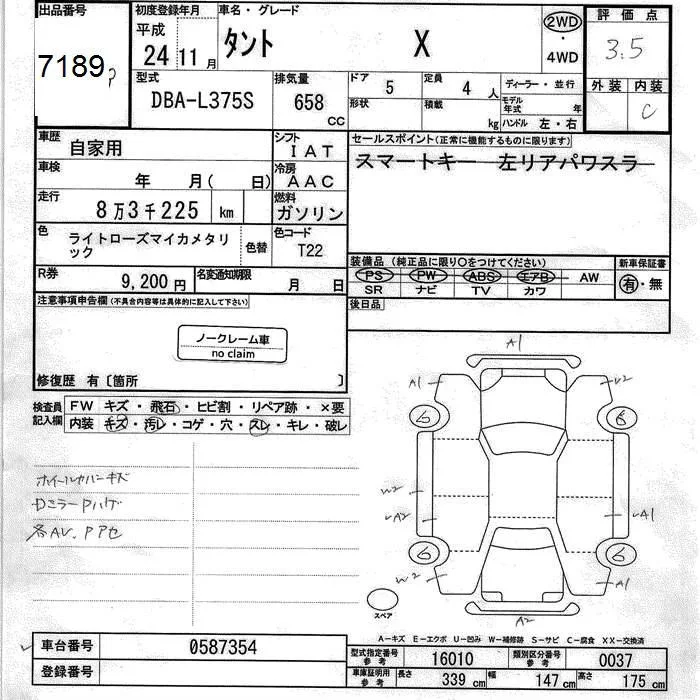 出品番号 初度登録年月 車名・グレード 評価点
7189
平成 24 11月 タント X 2WD ・ 4WD 3.5
型式 排気量 ドア 5 定員 4人 ディーラー・並行 外装 内装
DBA-L375S 658 CC 形状 積載 kg モデル年式 年 C
ハンドル 左・右
車歴 自家用 シフト IAT セールスポイント(正常に機能するものに限ります)
スマートキー 左リアパワスラ
車検 年 月( 日) 冷房 AAC
走行 8万3千225 km 燃料 ガソリン
色 ライトローズマイカメタリック 色替 色コード T22
装備品 (純正品に限り○をつけてください) 新車保証書
PS PW ABS エアB AW 有・無
SR ナビ TV カワ
R券 9,200円 名変通知期限 月 日
後日品
注意事項申告欄(不具合内容等は具体的に記入して下さい)
ノークレーム車
no claim
修復歴 有〔箇所 〕
検査員記入欄 FW キズ・飛石・ヒビ割・リペア跡・×要
内装 キズ・汚レ・コゲ・穴・スレ・キレ・破レ
ホイールカバーキズ
DミラーPハゲ
各AU、Pアセ
A1
A1
U2
6
6
W2
A2
A1
6
6
W2
A1
A2
スペア
A-キズ E-エクボ U-凹み W-補修跡 S-サビ C-腐食 XX-交換済
車台番号 0587354
型式指定番号 参考 16010 類別区分番号 参考 0037
登録番号
車庫証明用 参考 長さ 339 cm 幅 147 cm 高さ 175 cm